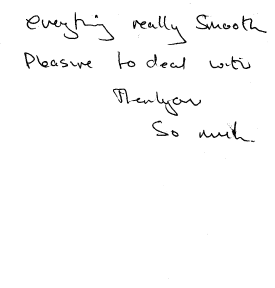 everything really smooth
Pleasure to deal with
Thankyou
So much.